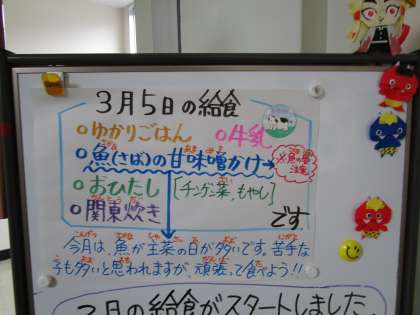 3月5日の給食
○ゆかりごはん ○牛乳
○魚(さば)の甘味噌かけ→ ※魚の骨注意
○おひたし [チンゲン菜、もやし]
○関東炊き です
今月は、魚が主菜の日が多いです。苦手な
子も多いと思われますが、頑張って食べよう!!
3月の給食がスタートしました。